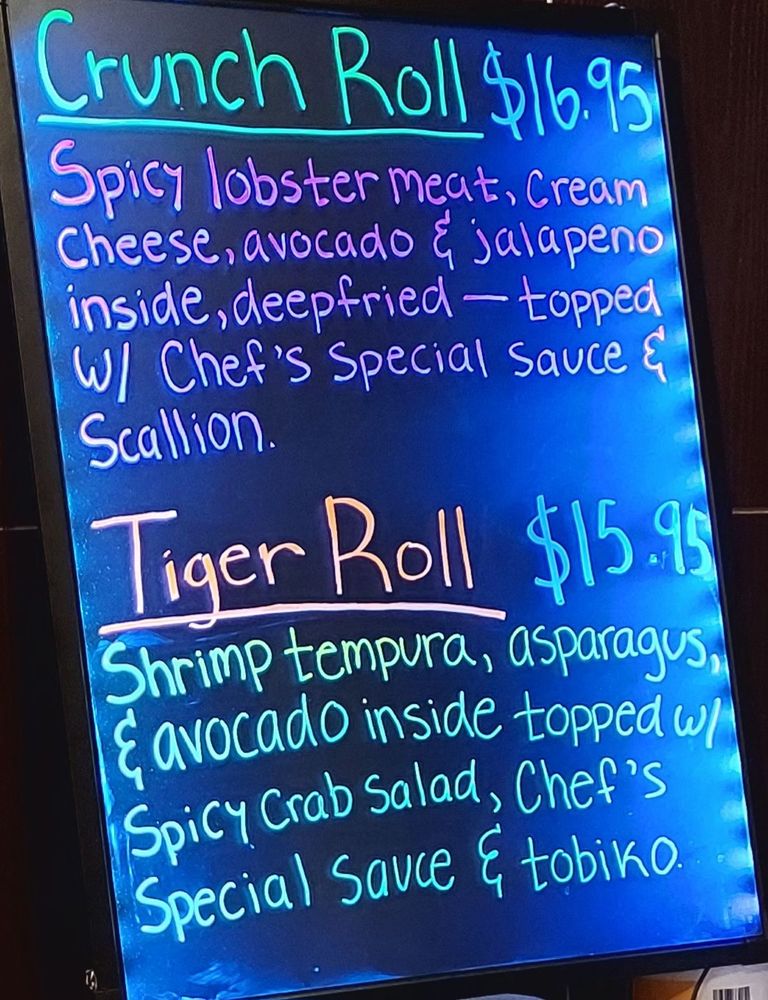 Crunch Roll $16.95
Spicy lobster meat, cream
cheese, avocado & jalapeno
inside, deepfried — topped
w/ Chef's Special sauce &
Scallion.
Tiger Roll $15.95
Shrimp tempura, asparagus,
& avocado inside topped w/
Spicy Crab Salad, Chef's
Special sauce & tobiko.